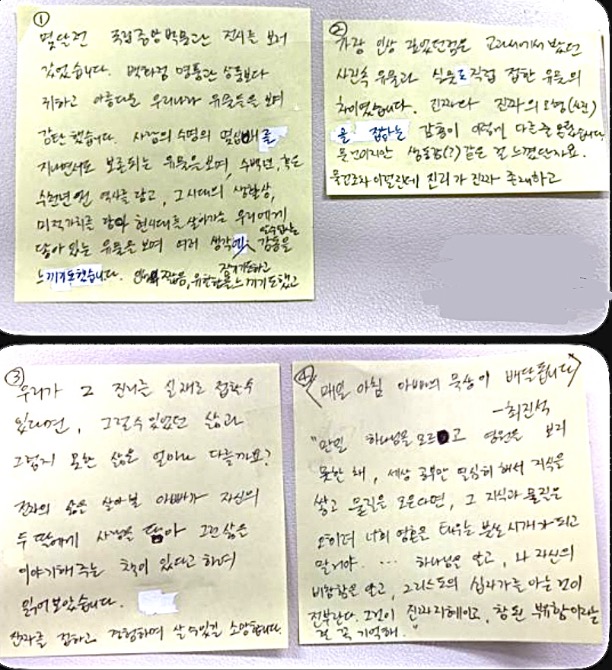 ①
몇달전 국립중앙박물관 전시를 보러
갔었습니다. 백화점 명품관 상품보다
귀하고 아름다운 우리나라 유물들을 보며
감탄 했습니다. 사람의 수명의 몇십배를
지나면서도 보존되는 유물을 보며, 수백년, 혹은
수천년 전 역사를 담고, 그 시대의 생활상,
미적가치를 담아 현시대를 살아가는 우리에게
닿아 있는 유물을 보며 여러 생각에 감동을
느끼기도했습니다. 인생의 짧음, 유한함을 느끼기도 했고
②
가장 인상 깊었던점은 교과서에서 봤던
사진속 유물과 실물로 직접 접한 유물의
차이였습니다. 진짜다 진짜의 모형(사진)
을 접하는 감동이 이렇게 다를줄 몰랐습니다.
물건이지만 생동감(?)같은 걸 느꼈던지요.
물건조차 이럴진데 진리가 진짜 존재하고
③
우리가 그 진리를 실제로 접할수
있다면, 그럴수 있었던 삶과
그렇지 못한 삶은 얼마나 다를까요?
진짜의 삶을 살아본 아빠가 자신의
두 딸에게 사랑을 담아 그런 삶을
이야기해주는 책이 있다고 하여
읽어 보았습니다.
진짜를 접하고 경험하며 살 수 있길 소망합니다.
④
<매일 아침 아빠의 묵상이 배달됩니다>
-최진석
"만일 하나님을 모르고 영원을 보지
못한 채, 세상 공부만 열심히 해서 지식을
쌓고 물질을 모은다면, 그 지식과 물질은
오히려 너희 영혼을 태우는 분쇄기가 되고
말거야. ... 하나님을 알고, 나 자신의
비참함을 알고, 그리스도의 십자가를 아는 것이
전부란다. 그것이 진짜 지혜이고, 참된 부유함이라는
걸 꼭 기억해."